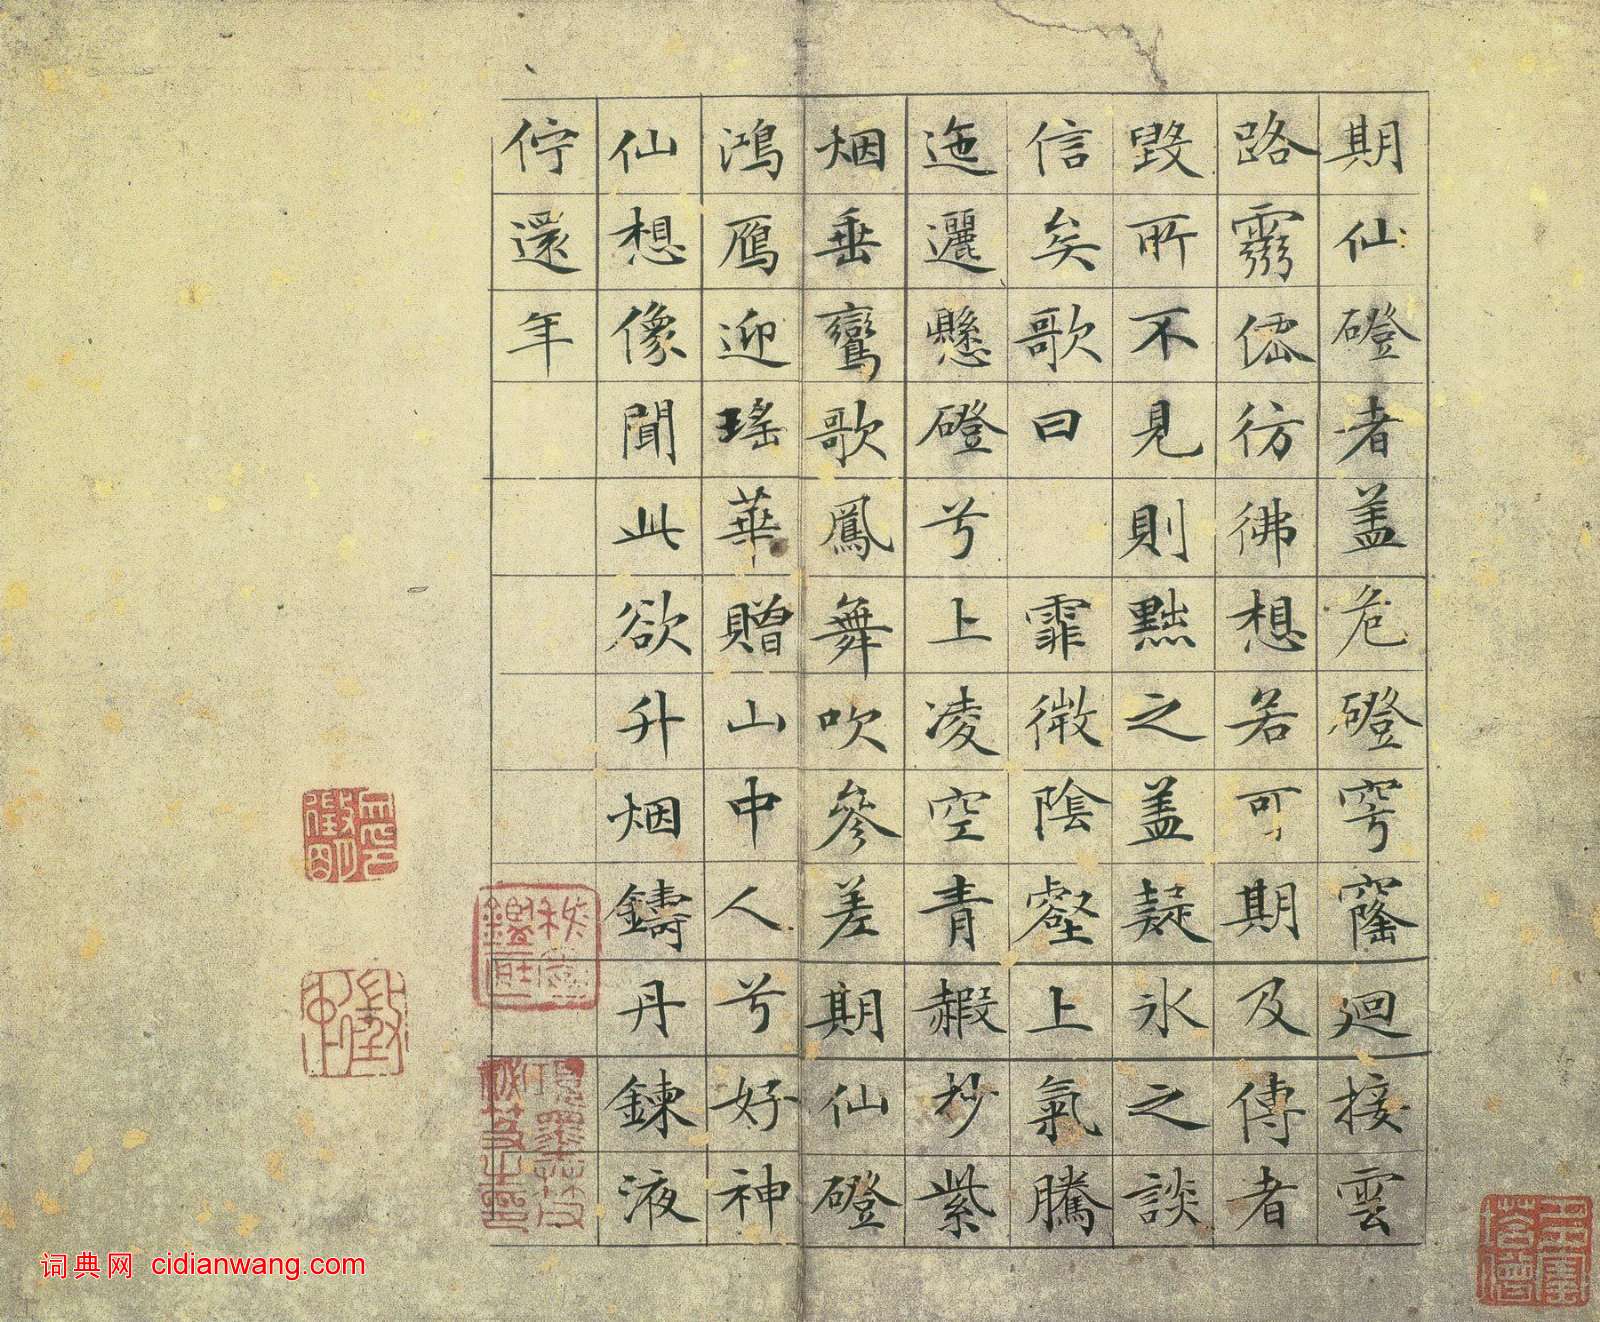 期仙磴者盖危磴穹窿迴接雲
路靈僊彷彿想若可期及傳者
毀所不見則黜之盖疑氷之談
信矣歌曰 霏微陰壑上氣騰
迤邐懸磴兮上凌空青赮杪紫
烟垂鸞歌鳳舞吹參差期仙磴
鴻鴈迎瑤華贈山中人兮好神
仙想像聞此欲升烟鑄丹鍊液
佇還年
词典网 cidianwang.com